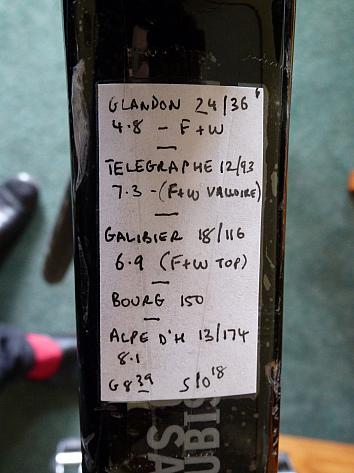 GLANDON 24/36
4.8 - F+W
TELEGRAPHE 12/93
7.3 - (F+W VALLOIRE)
GALIBIER 18/116
6.9 (F+W TOP)
BOURG 150
ALPE D'H 13/174
8.1
G 8 39 S 10 18